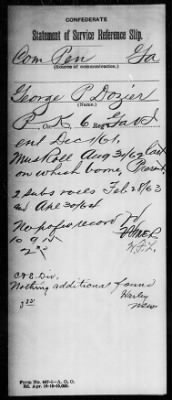 CONFEDERATE
Statement of Service Reference Slip.
Com Pen Ga
(Source of communication.)
George P. Dozier
(Name.)
P. Co. K, 6 Reg Ga
enl Dec 1/61,
Must Roll Aug 31/62 last
on which borne, Present,
2 subs roles Feb 28/63
and Apr 30/64
No pofws record
C & E. Div.
Nothing additional found
Harley
Form No. 467-1—A. G. O.